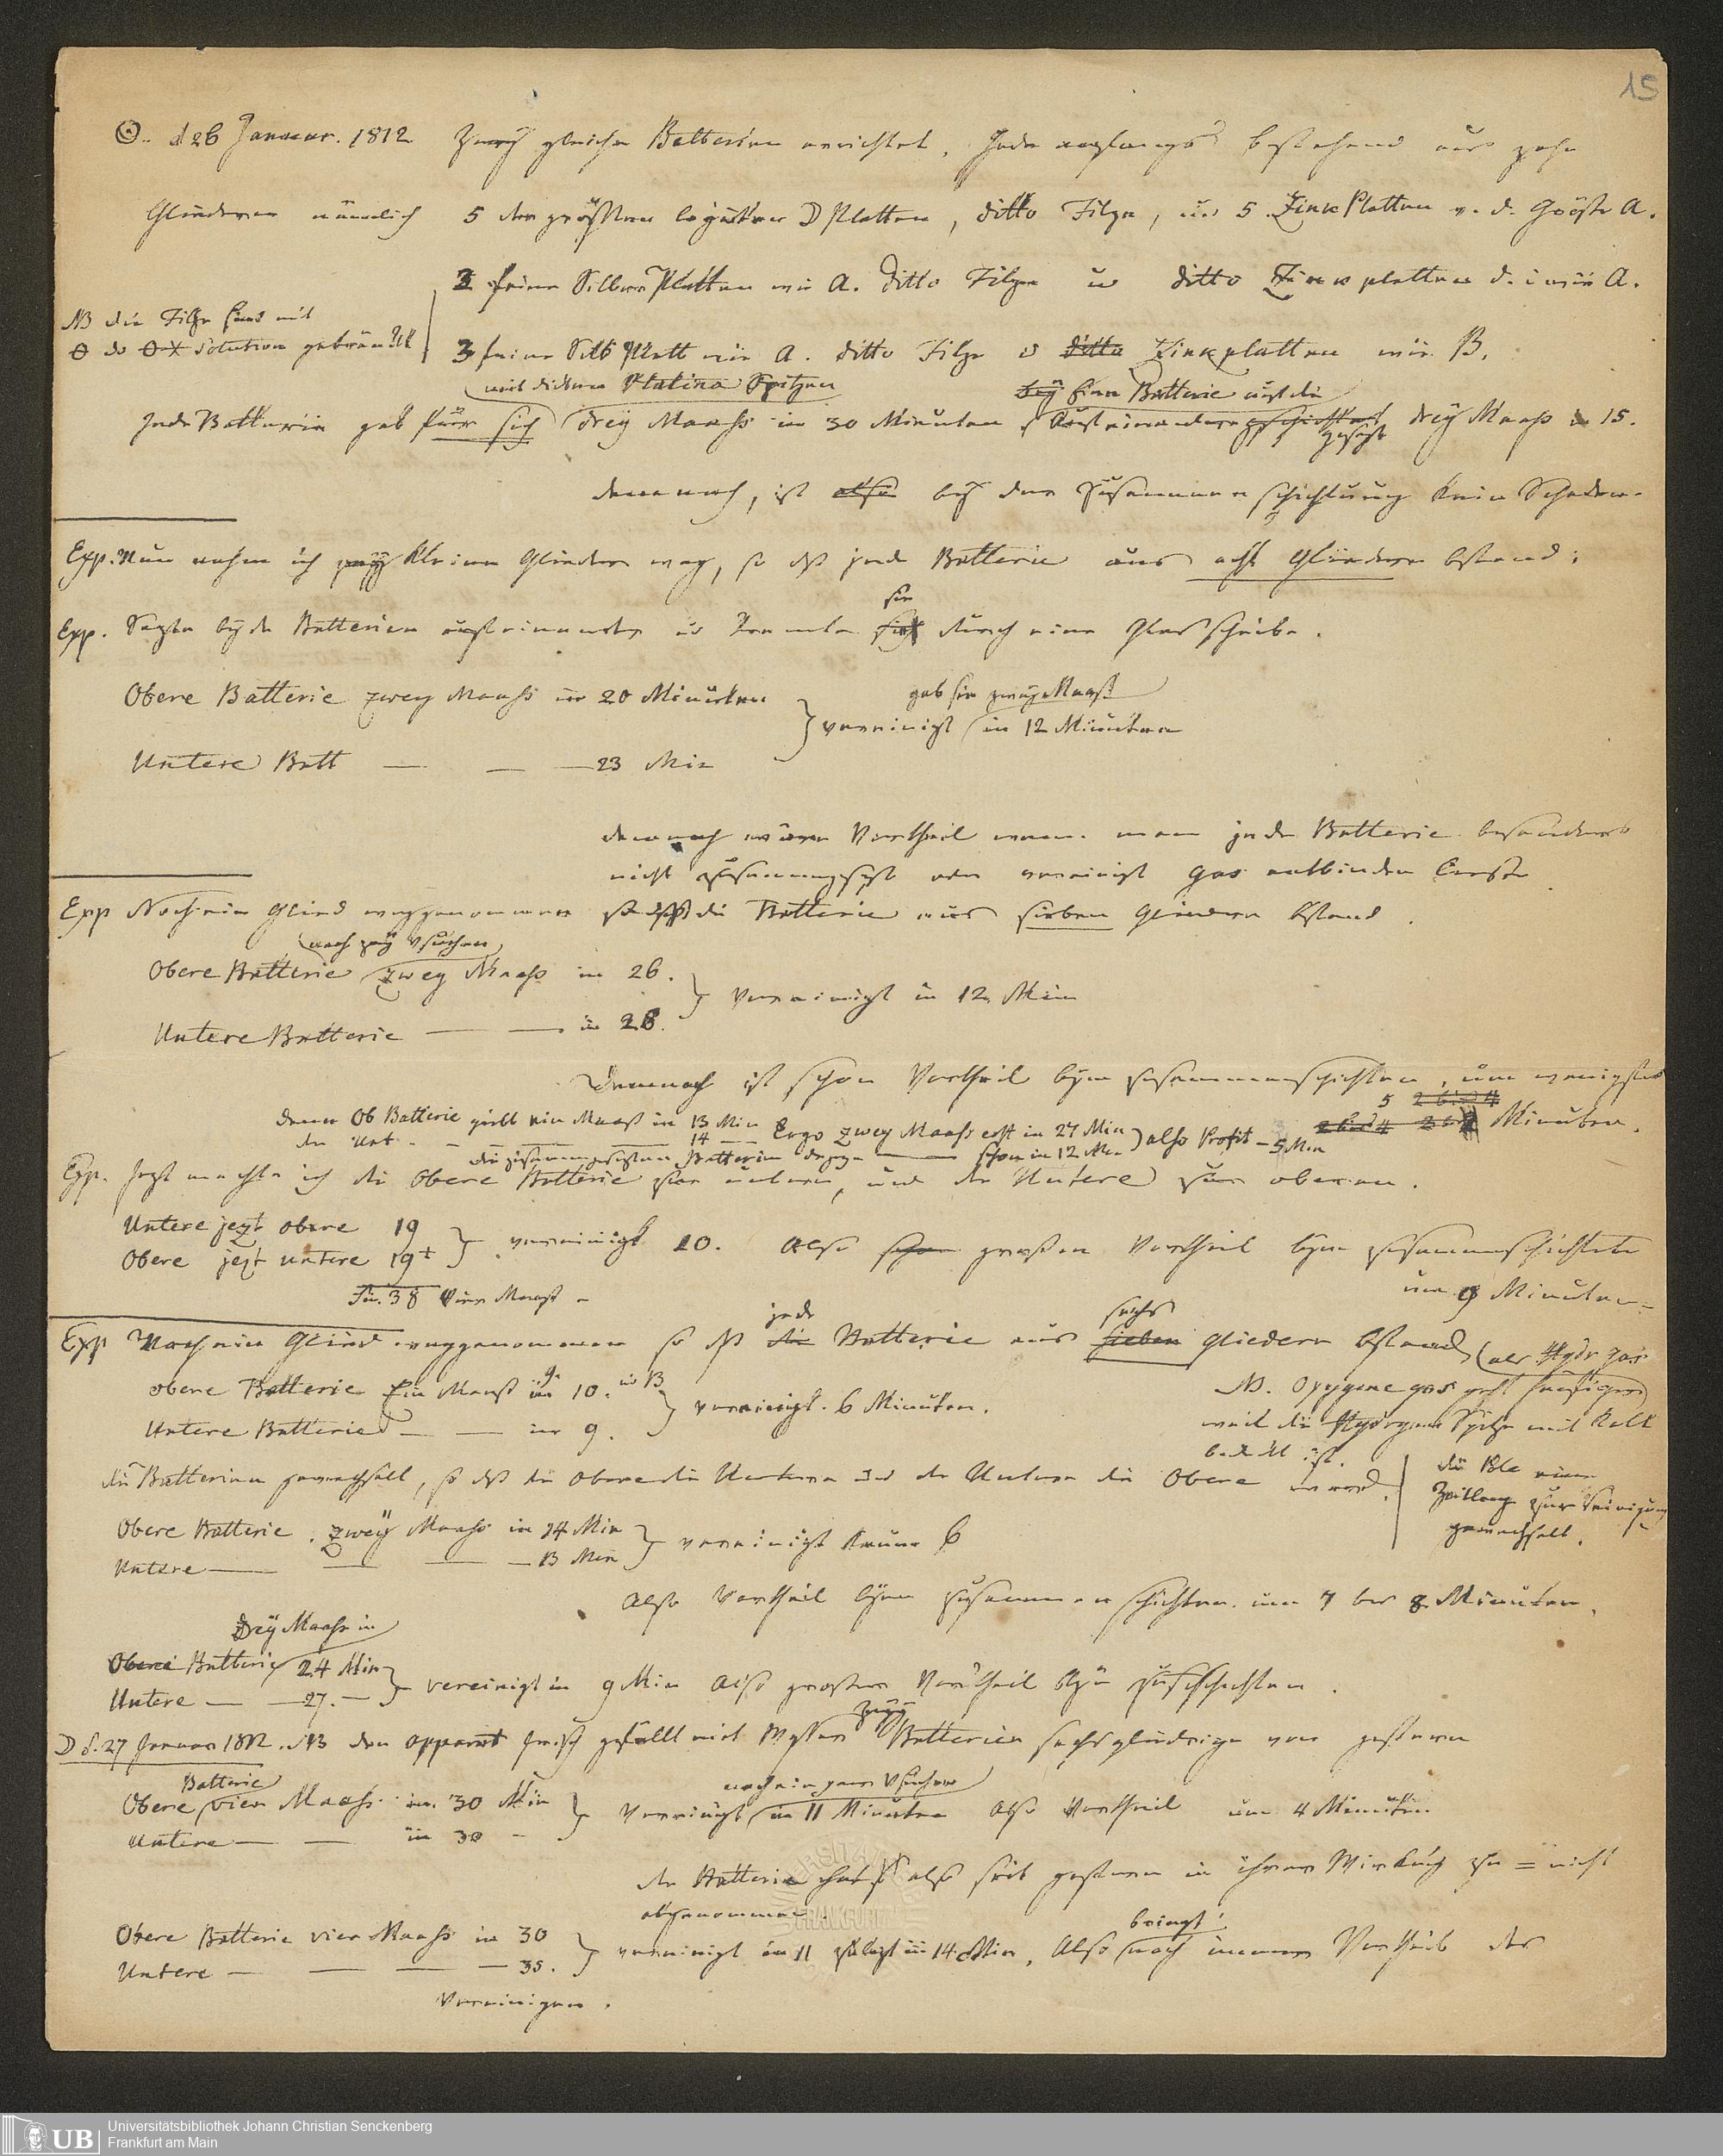 15
☉. d 26 Januar. 1812. Zwey gleiche Batterien errichtet, Jede anfangs bestehend aus zehn
Gliedern nämlich 5 der größten legirten ☽ Platten, ditto Filze, u 5 Zink Platten v. d. Größe A.
2 feine Silber Platten wie A. ditto Filze u ditto Zink platten d. i wie A.
NB die Filze sind mit
do solution getränkt
3 feine Silb Platt wie A. ditto Filze u ditto Zinkplatten wie B.
mit dicken Platina Spitzen
bey Eine Batterie auf die
Jede Batterie gab für sich drey Maaß in 30 Minuten, Auf einander geschichtet gesezt drey Maaß in 15.
demnach, ist also bey der Zusammenschichtung kein Schaden.
Exp. Nun nahm ich zwey kleine Glieder weg, so dß jede Batterie aus acht Gliedern bestand;
sie
Exp. Sezte beyde Batterien auf einander u trennte sich durch eine Glasscheibe.
Obere Batterie zwey Maaß in 20 Minuten
gab sie zwey Maaß
vereinigt in 12 Minuten
Untere Batt — — — 23 Min
demnach wäre Vortheil wenn man jede Batterie besonders
nicht zusammengesezt oder vereinigt Gas entbinden ließe
Exp Noch ein Glied weggenommen so dß die Batterie aus sieben Gliedern bstand.
nach zwey Vsuchen
Obere Batterie zwey Maaß in 26.
vereinigt in 12 Min
Untere Batterie — — in 28.
Demnach ist schon Vortheil bym zusammenschichten, um wenigstens
5 2 bis 4
2 bis 4 Minuten.
denn Ob Batterie giebt ein Maaß in 13 Min
die Unt - - — 14 — Ergo zwey Maaß erst in 27 Min
die zusammengesezten Batterien dagegen — schon in 12 Min also Profit – 5 Min
Exp. Jezt machte ich die Obere Batterie zur untern, und die Untere zur oberen.
Untere jezt obere 19
Obere jezt untere 19+
vereinigt 10. Also schon großen Vortheil bym zusammenschichten
um 9 Minuten
In. 38 Vier Maaß
jede sechs
Exp Noch ein Glied weggenommen so dß die Batterie aus sieben Gliedern bstand (als Hydr gas
obere Batterie Ein Maaß in 10. 
Untere Batterie — — in 9.
vereinigt. 6 Minuten.
NB. Oxygene gas geht häufiger
weil die Hydrogene Spitze mit Kalk
bedekt ist.
die Batterien gewechselt, so dß die Obere die Untere und die Untere die Obere ward.
die Ble einer
Zeitlang zur Reinigung
gewechselt.
Obere Batterie. zwey Maaß in 14 Min
Untere — — — 13 Min
vereinigt kaum 6
Also Vortheil bym zusammenschichten um 7 bis 8 Minuten.
Drey Maaß in
Obere Batterie 24 Min
Untere — — 27. —
vereinigt in 9 Min Also großer Vortheil bym
zwey
☽ d. 27 Januar 1812. NB den apparat frisch gefüllt mit Wasser Batterien sechsgliedrige von gestern
Batterie
Obere vier Maaß in 30 Min
Untere — — in 30 -
nach ein paar Vsuchen
Vereinigt in 11 Minuten Also Vortheil um 4 Minuten
die Batterie hat also seit gestern in ihrer Wirkung = nicht
abgenommen.
Obere Batterie vier Maaß in 30
Untere — — — — 35.
bringt
vereinigt in 11 zulezt in 14 Min, Also noch immer Vortheil das
Vereinigen.
UB
Universitätsbibliothek Johann Christian Senckenberg
Frankfurt am Main